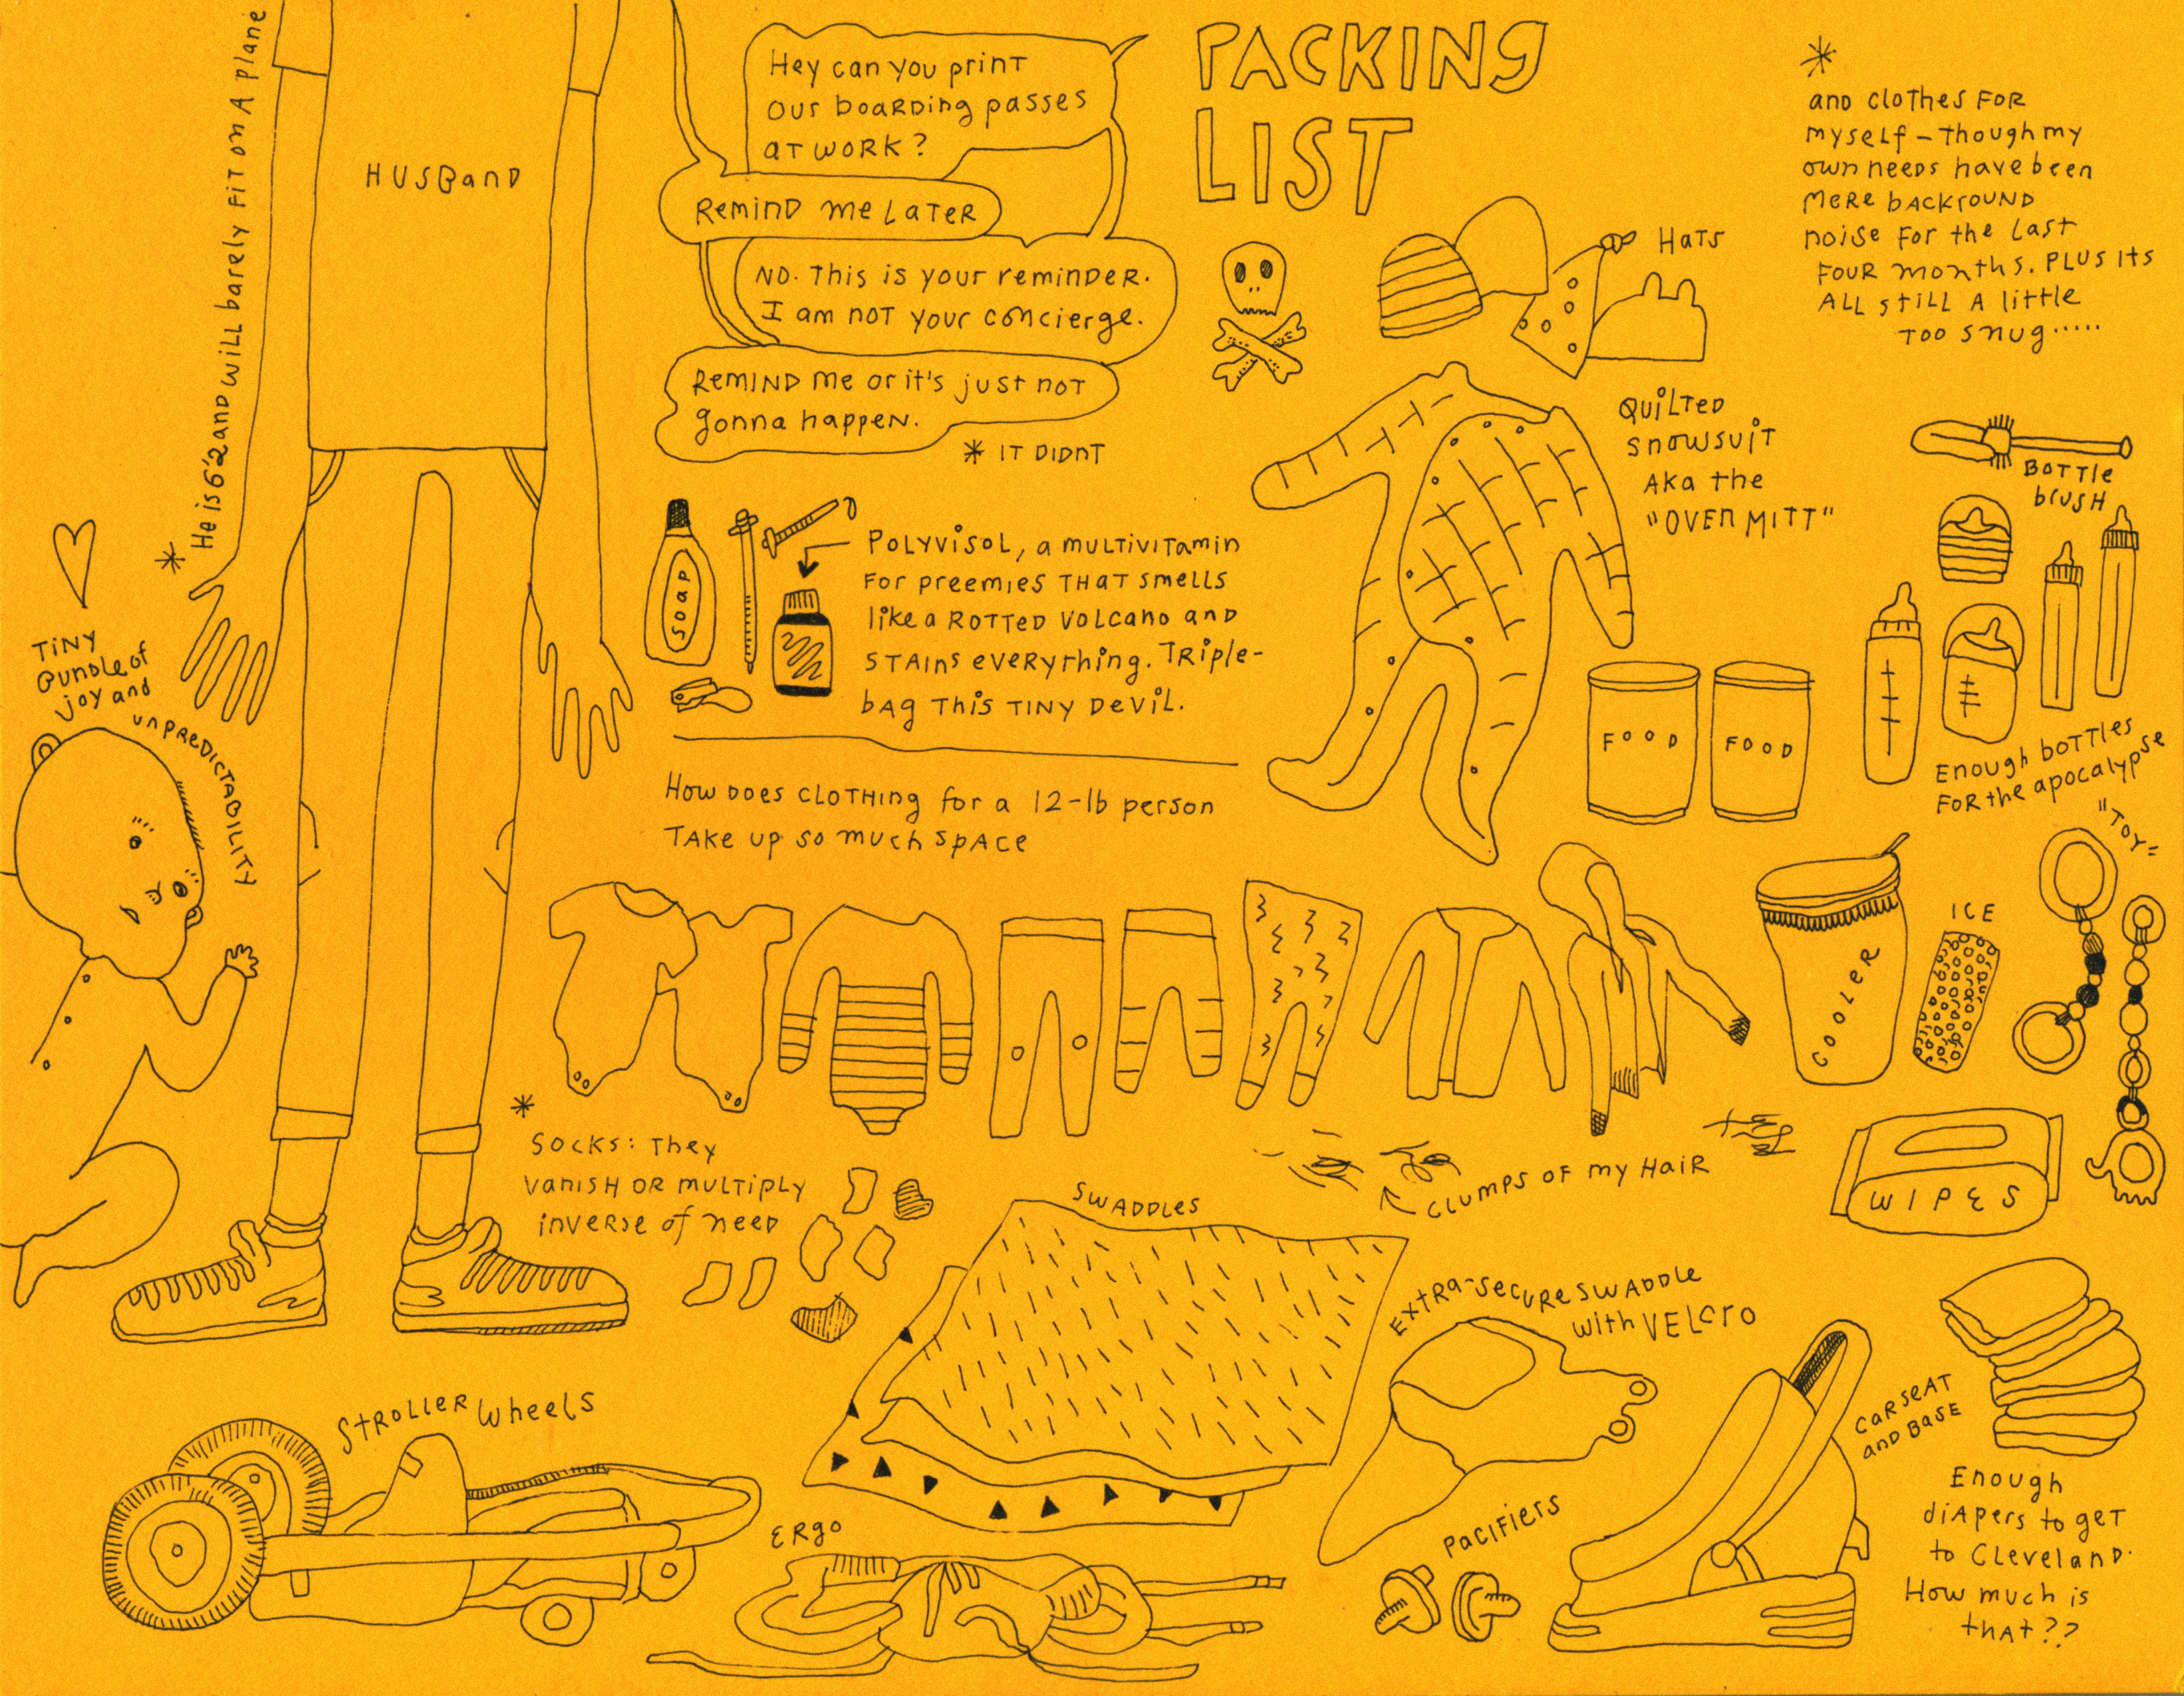 PACKING
LIST
He is 6'2 and will barely fit on a plane
HUSBAND
Hey can you print
our boarding passes
at work?
Remind me later
No. This is your reminder.
I am not your concierge.
Remind me or it's just not
gonna happen.
* IT DIDNT
*
and clothes for
myself – though my
own needs have been
mere backround
noise for the last
four months. Plus its
all still a little
too snug.....
Hats
Quilted
snowsuit
aka the
"OVEN MITT"
Bottle
brush
SOAP
Polyvisol, a multivitamin
for preemies that smells
like a rotted volcano and
stains everything. Triple-
bag this tiny devil.
*
Tiny
bundle of
joy and
unpredictability
FOOD
FOOD
Enough bottles
for the apocalypse
"TOY"
How does clothing for a 12-lb person
take up so much space
COOLER
ICE
*
Socks: they
vanish or multiply
inverse of need
Clumps of my hair
WIPES
Swaddles
Extra-secure swaddle
with velcro
Stroller wheels
Ergo
Pacifiers
Carseat
and base
Enough
diapers to get
to Cleveland.
How much is
that??